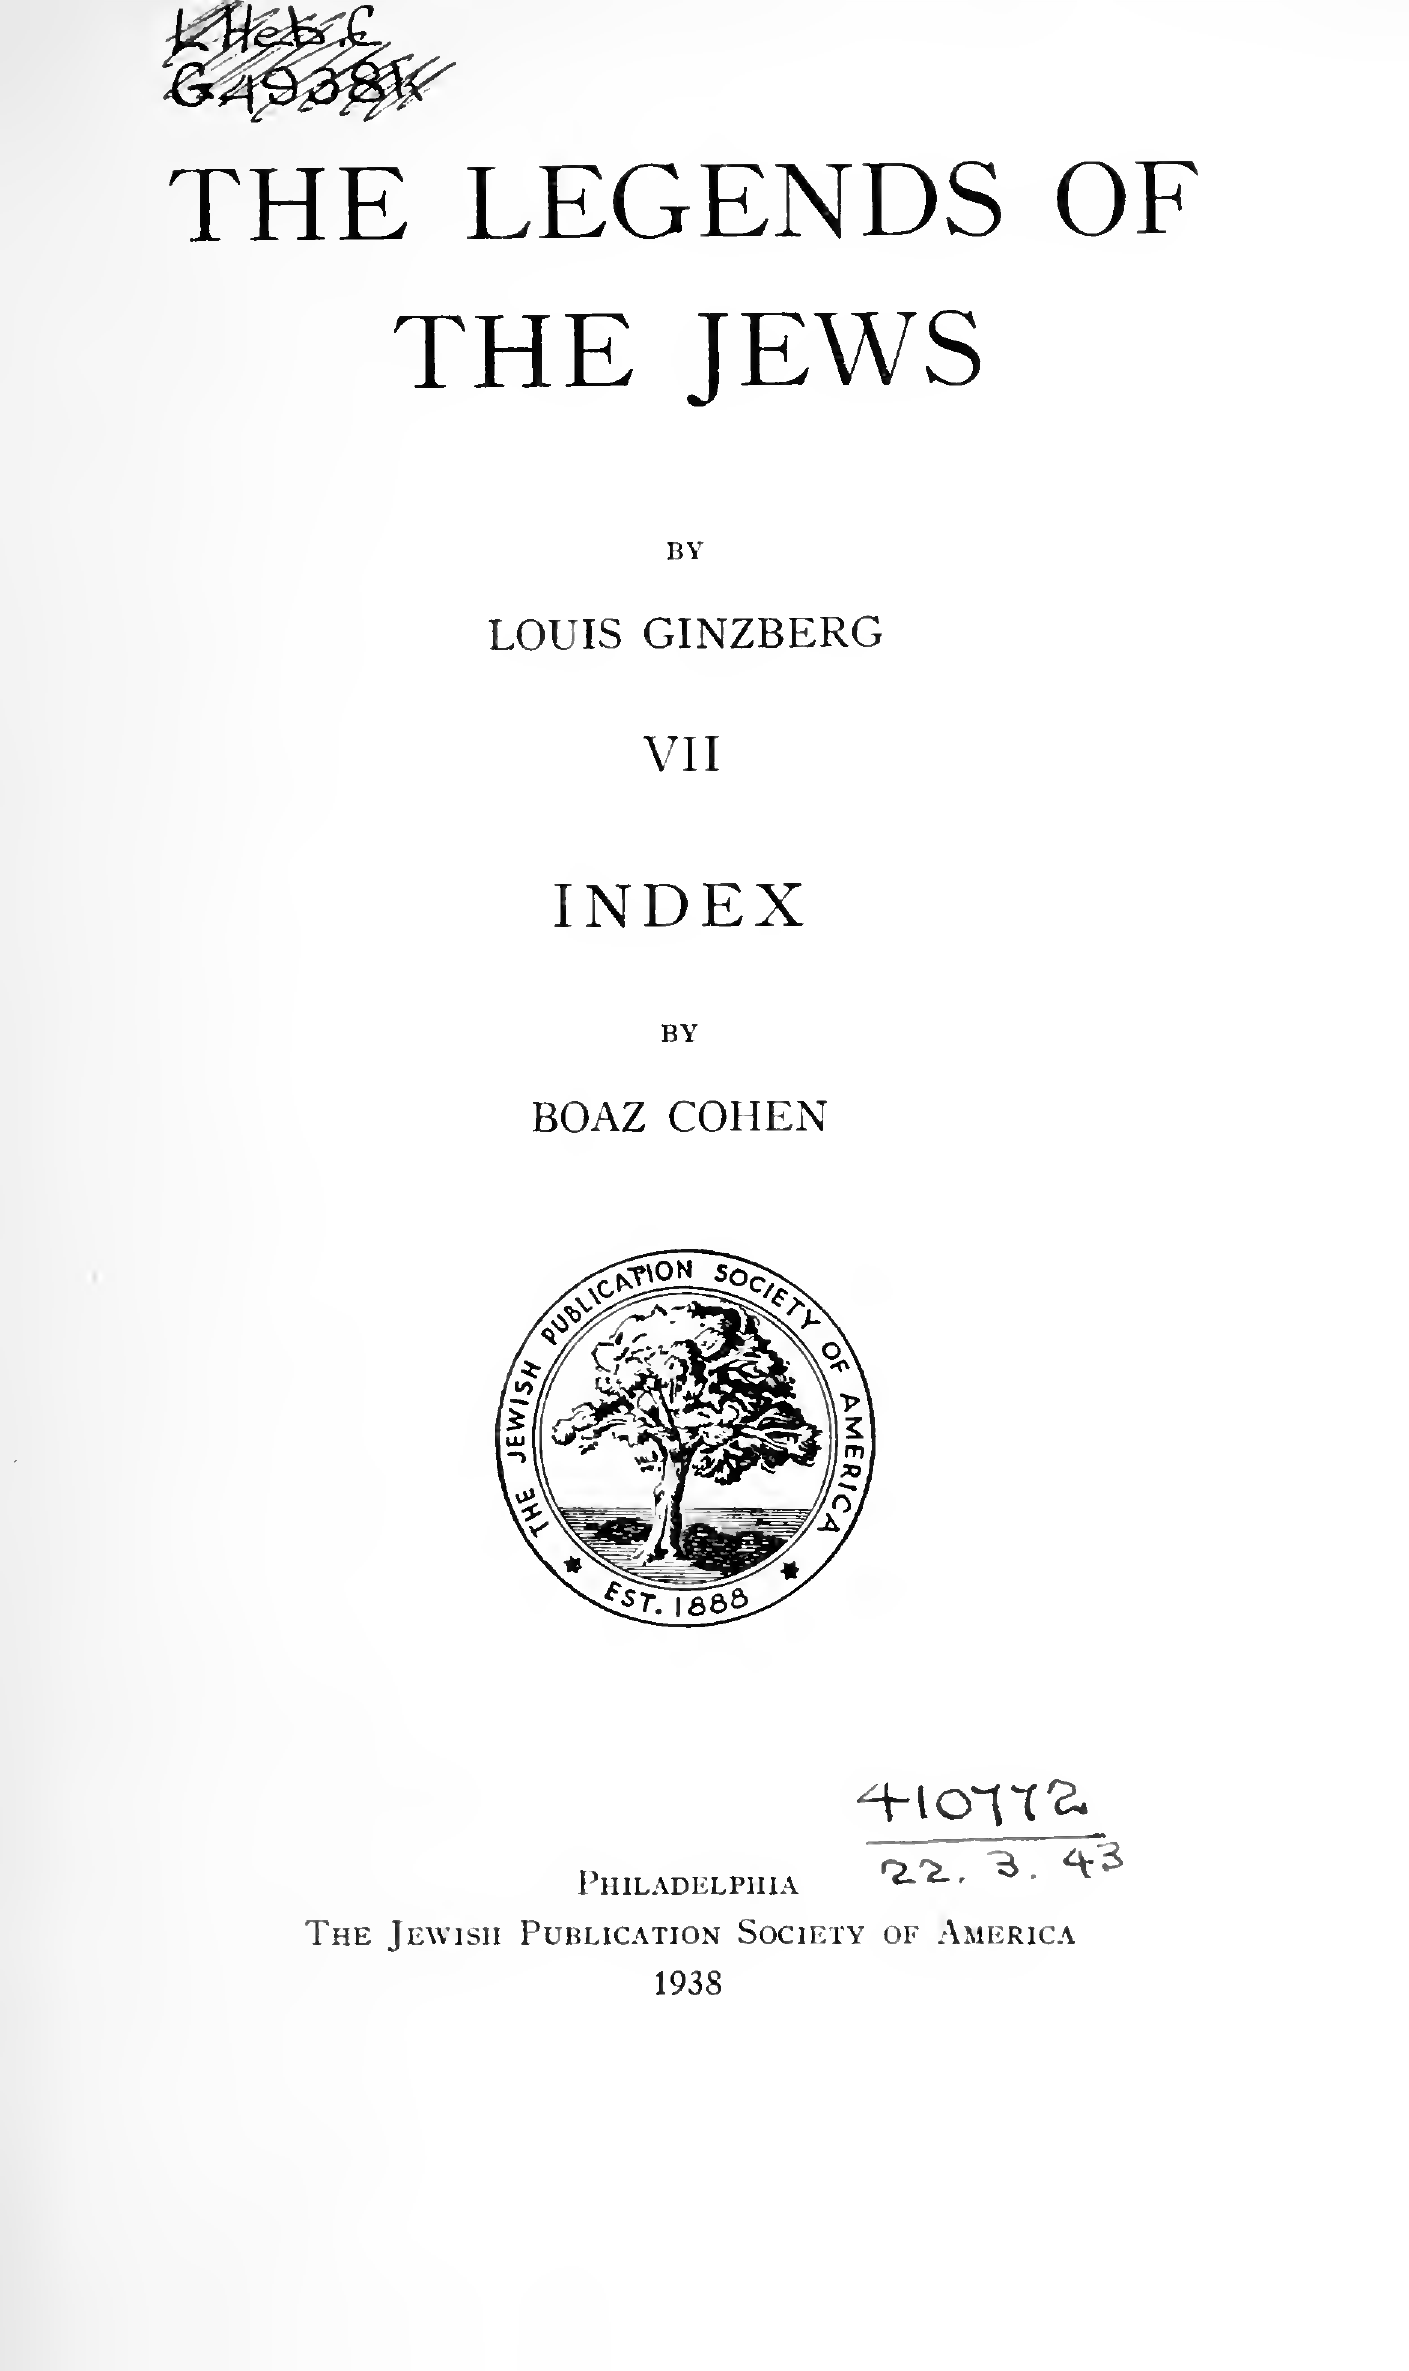 L Heb.C
THE LEGENDS OF
THE JEWS
BY
LOUIS GINZBERG
VII
INDEX
BY
BOAZ COHEN
THE JEWISH PUBLICATION SOCIETY OF AMERICA
EST. 1888
410772
22. 3. 43
PHILADELPHIA
THE JEWISH PUBLICATION SOCIETY OF AMERICA
1938